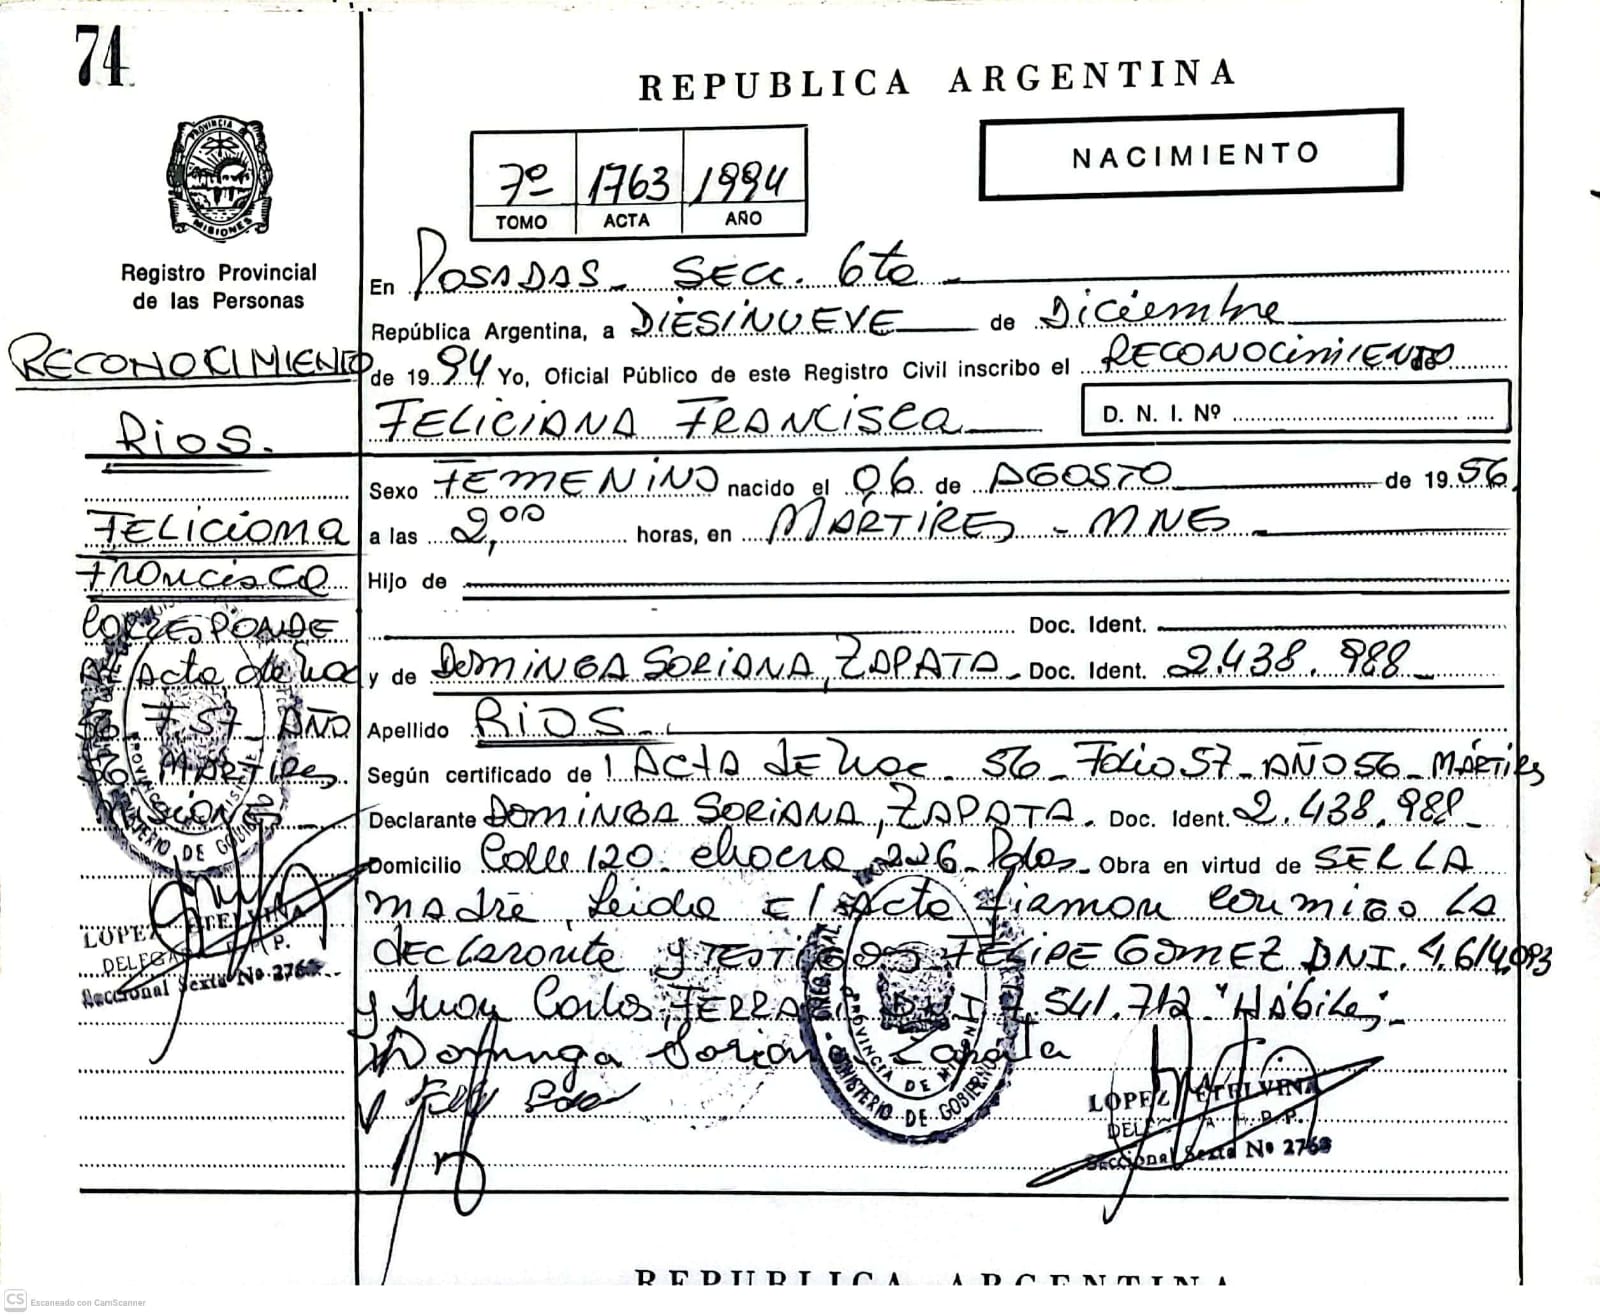 74
REPUBLICA ARGENTINA
NACIMIENTO
7º 1763 1994
TOMO ACTA AÑO
PROVINCIA DE MISIONES
Registro Provincial
de las Personas
RECONOCIMIENTO
Rios.
FELICIANA
FRANCISCA
CORRESPONDE
Al Acta de Nac
56 F.57 AÑO
56 MÁRTIRES
MISIONES
LOPEZ ETELVINA
DELEGADA R.P.P.
Seccional Sexta Nº 2768
En POSADAS SECC. 6ta
República Argentina, a DIESINUEVE de Diciembre
de 1994 Yo, Oficial Público de este Registro Civil inscribo el RECONOCIMIENTO de
FELICIANA FRANCISCA D. N. I. Nº
Sexo FEMENINO nacido el 06 de AGOSTO de 1956
a las 2,00 horas, en MÁRTIRES - MNES
Hijo de
Doc. Ident.
y de DOMINGA SORIANA, ZAPATA Doc. Ident. 2.438.988
Apellido RIOS
Según certificado de 1 ACTA de Nac. 56 - Folio 57 - AÑO 56 - MÁRTIRES
Declarante DOMINGA SORIANA, ZAPATA. Doc. Ident. 2.438.988
Domicilio Calle 120 chacra 226 Pdas. Obra en virtud de SER LA
madre, Leida el Acta firman conmigo LA
declarante y TESTIGOS FELIPE GOMEZ DNI. 4.614.093
y Juan Carlos, FERRA D.N.I 7.541.712 "Hábiles".
Dominga Soriana Zapata
PROVINCIA DE MISIONES
MINISTERIO DE GOBIERNO
LOPEZ ETELVINA
Seccional Sexta Nº 2768
REPUBLICA ARGENTINA
CS Escaneado con CamScanner